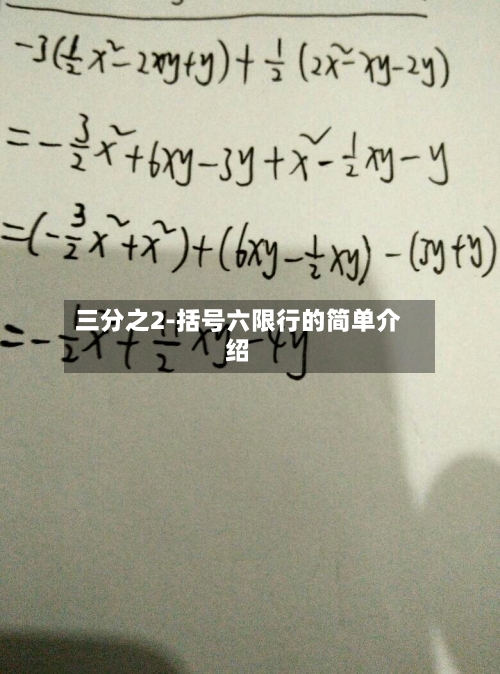 -3(½x²-2xy+y)+½(2x²-xy-2y)
=-3/2x²+6xy-3y+x²-½xy-y
=(-3/2x²+x²)+(6xy-½xy)-(3y+y)
三分之2-括号六限行的简单介
绍